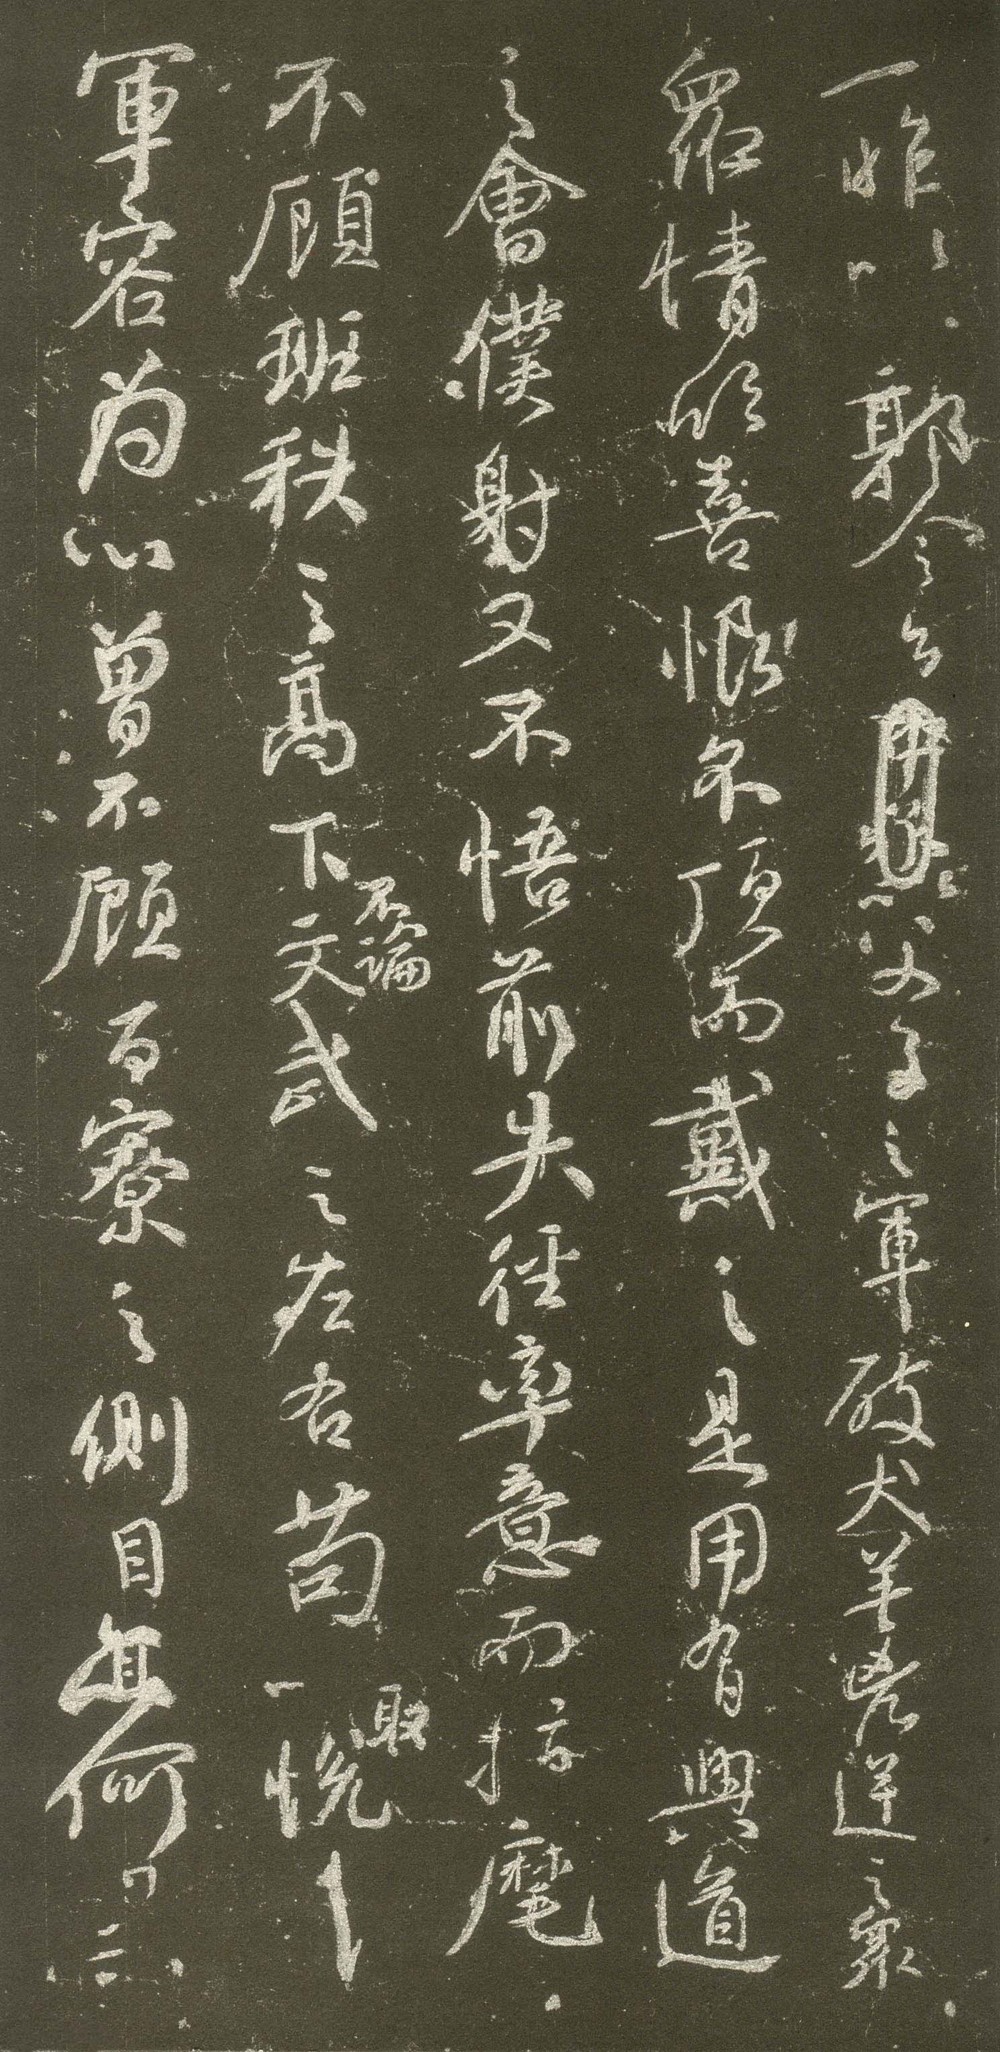 一昨以郭令公父子之軍破犬羊兇逆之眾
眾情欣喜恨不頂而戴之是用有興道
之會僕射又不悟前失徑率意而指麾
不顧班秩之高下不論文武之左右苟以取悅
軍容為心曾不顧百寮之側目亦何